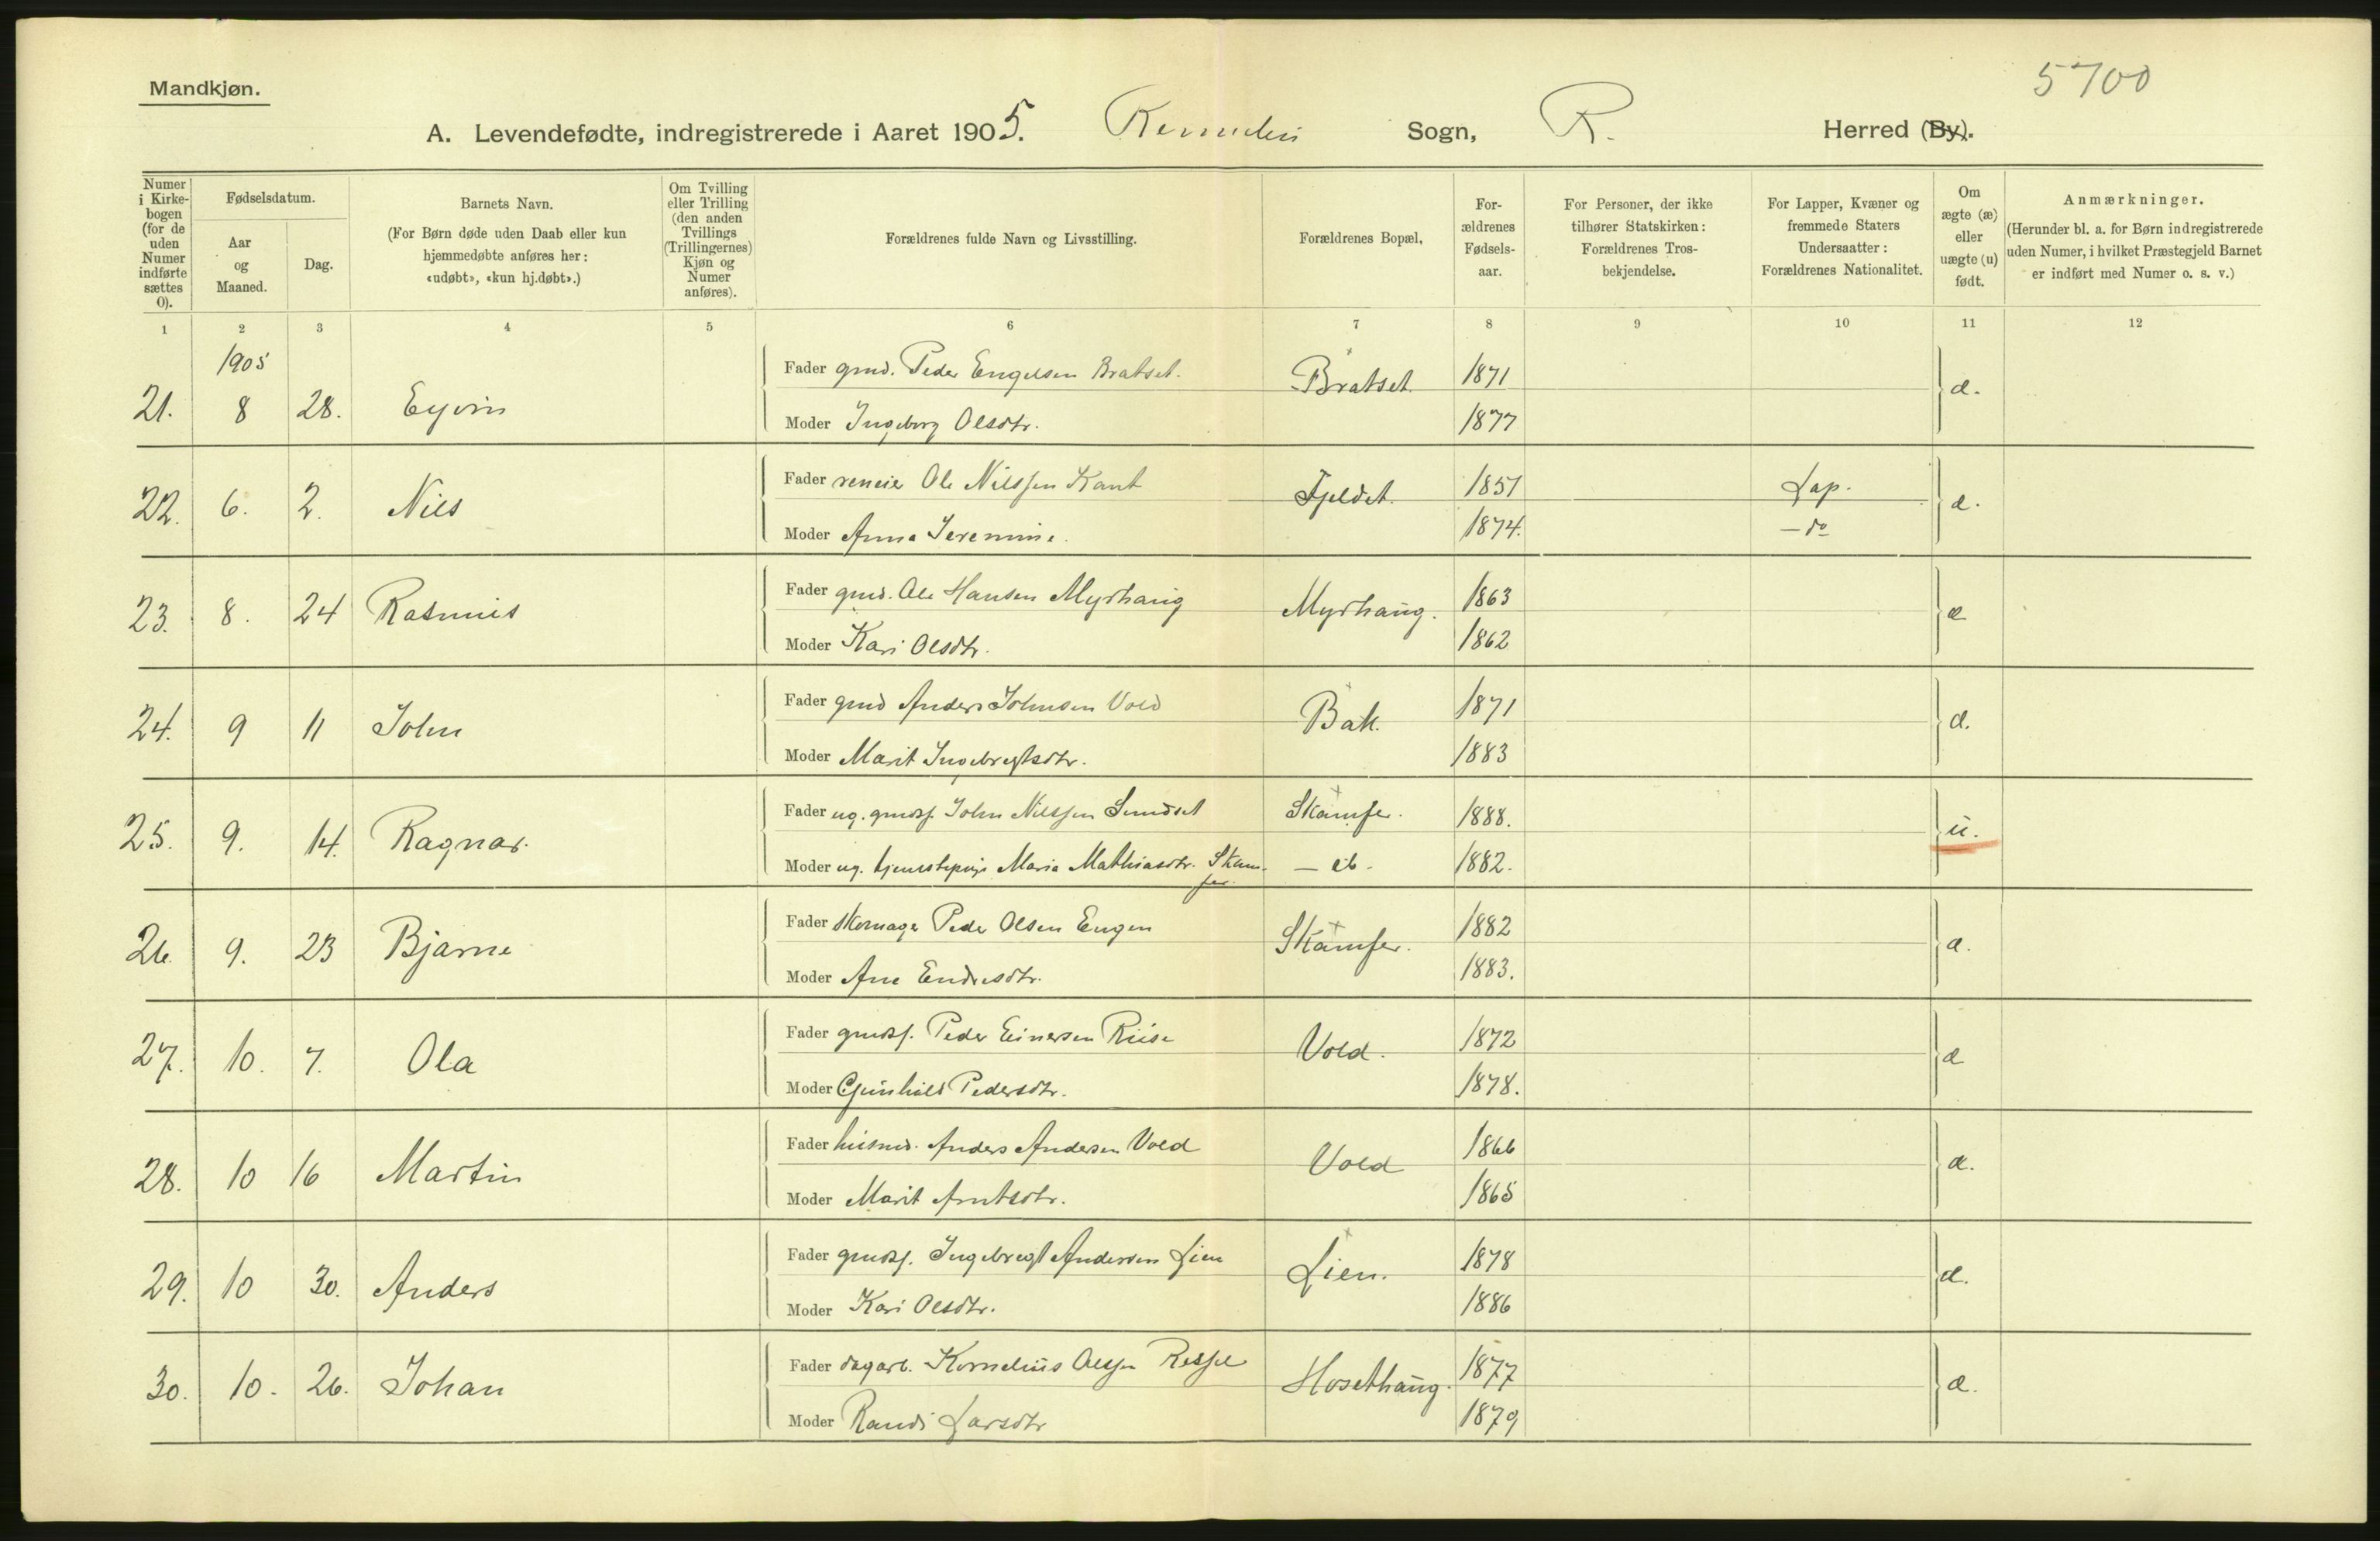 Mandkjøn.
5700
A. Levendefødte, indregistrerede i Aaret 1905. Sogn, R. Herred (By).
Numer i Kirkebogen (for de uden Numer indførte sættes 0).
Fødselsdatum.
Aar og Maaned.
Dag.
Barnets Navn.
(For Børn døde uden Daab eller kun hjemmedøbte anføres her: «udøbt», «kun hj.døbt».)
Om Tvilling eller Trilling (den anden Tvillings (Trillingernes) Kjøn og Numer anføres).
Forældrenes fulde Navn og Livsstilling.
Forældrenes Bopæl.
Forældrenes Fødselsaar.
For Personer, der ikke tilhører Statskirken: Forældrenes Trosbekjendelse.
For Lapper, Kvæner og fremmede Staters Undersaatter: Forældrenes Nationalitet.
Om ægte (æ) eller uægte (u) født.
Anmærkninger.
(Herunder bl. a. for Børn indregistrerede uden Numer, i hvilket Præstegjeld Barnet er indført med Numer o. s. v.)
1 2 3 4 5 6 7 8 9 10 11 12
1905
21. 8 28. Eyvin Fader gmd. Peder Engelsen Bratset. Bratset. 1871 æ.
Moder Ingeborg Olsdtr. 1877
22. 6. 2. Nils Fader reneier Ole Nilssen Kant Fjeldet. 1851 Lap. æ.
Moder Anna Jeremine. 1874. — do
23. 8. 24 Rasmus Fader gmd. Ole Hansen Myrhaug Myrhaug. 1863 æ
Moder Kari Olsdtr. 1862
24. 9 11 John Fader gmd Anders Johnsen Vold Bak. 1871 æ.
Moder Marit Ingebregtsdtr. 1883
25. 9. 14. Ragnar. Fader ug. gmdsf. John Nilssen Sundset Skamfer. 1888. u.
Moder ug. tjenestepige Maria Mathiasdtr. Skamfer. — ib. 1882.
26. 9. 23 Bjarne Fader skomager Peder Olsen Engen Skamfer. 1882 æ.
Moder Ane Endresdtr. 1883.
27. 10. 7. Ola Fader gmdsf. Peder Einersen Riise Vold. 1872 æ
Moder Gunhild Pedersdtr. 1878.
28. 10 16 Martin Fader husmd. Anders Andersen Vold Vold 1866 æ.
Moder Marit Arntsdtr. 1865
29. 10 30. Anders Fader gmdsf. Ingebregt Andersen Lien Lien. 1878 æ.
Moder Kari Olsdtr. 1886
30. 10. 26. Johan Fader dagarb. Kornelius Olssen Hosethaug. 1877 æ.
Moder Randi Larsdtr 1879